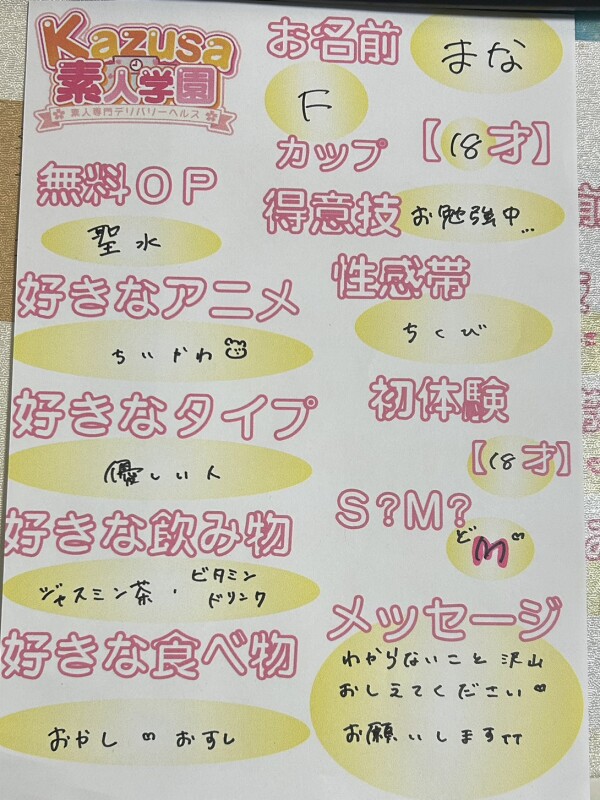 Kazusa
素人学園
素人専門デリバリーヘルス
お名前
まな
F
カップ
【18才】
無料OP
聖水
得意技
お勉強中...
好きなアニメ
ちいかわ
性感帯
ちくび
好きなタイプ
優しい人
初体験
【18才】
好きな飲み物
ジャスミン茶・ビタミン
ドリンク
S?M?
どM
好きな食べ物
おかし おすし
メッセージ
わからないこと沢山
おしえてください
お願いします